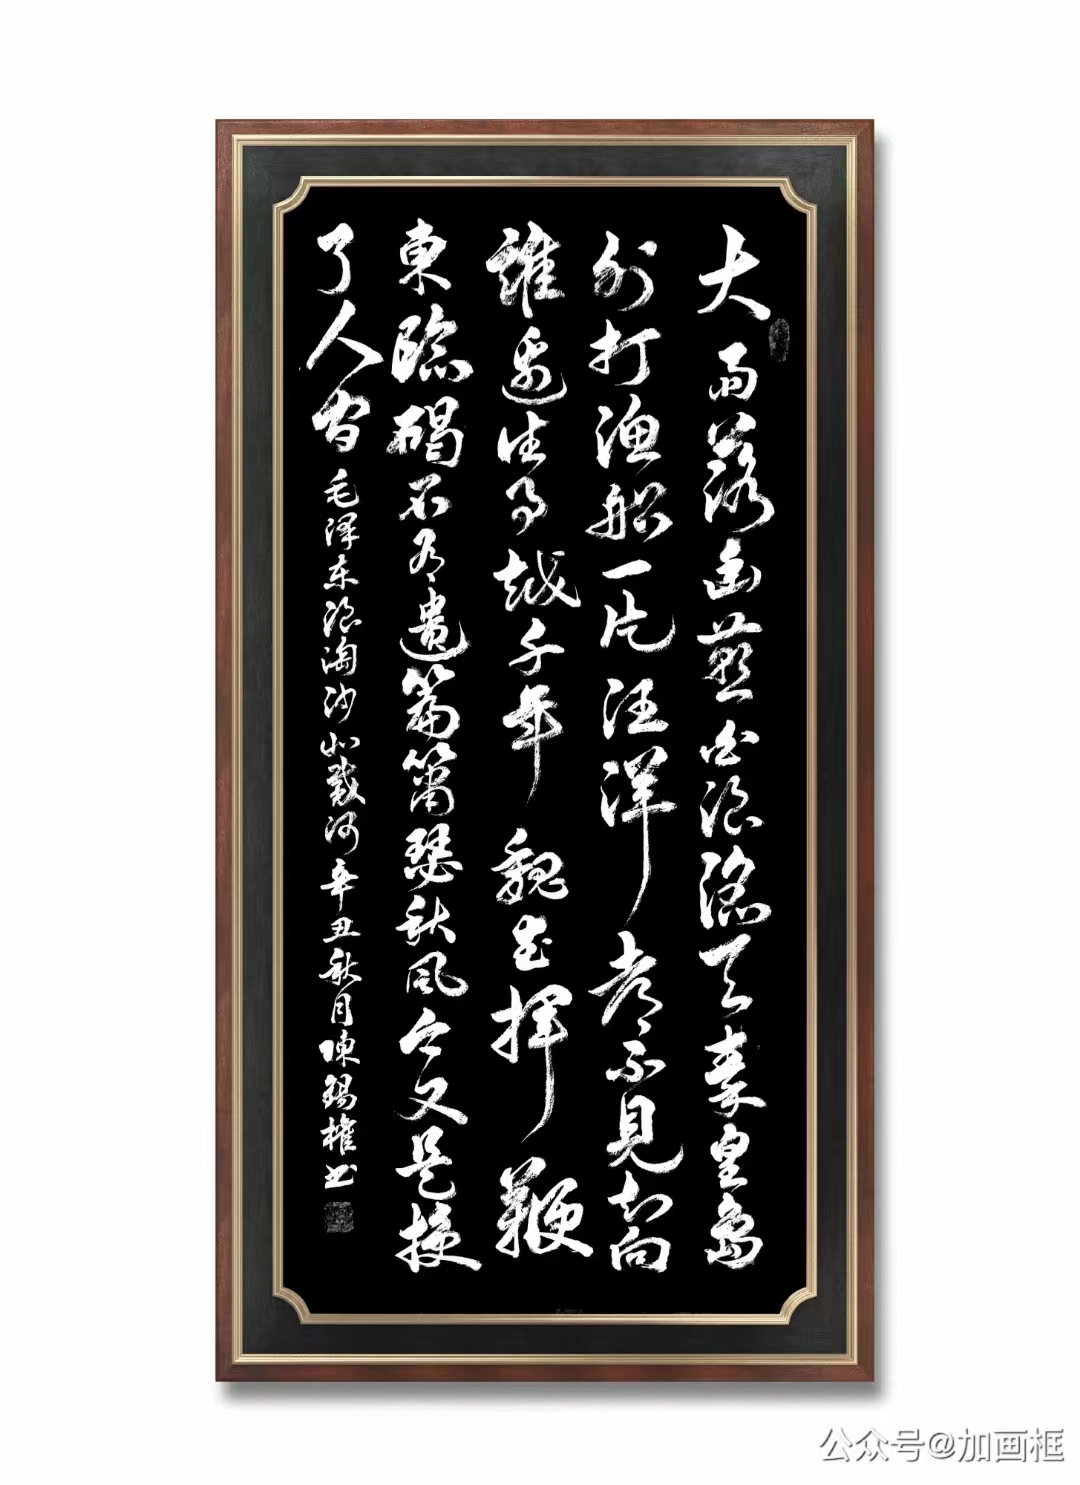 大雨落幽燕白浪滔天秦皇島
外打渔船一片汪洋都不見知向
誰邊往事越千年魏武揮鞭
東臨碣石有遺篇蕭瑟秋風今又是换
了人间毛泽东浪淘沙北戴河辛丑秋月陳錫權书
公众号@加画框